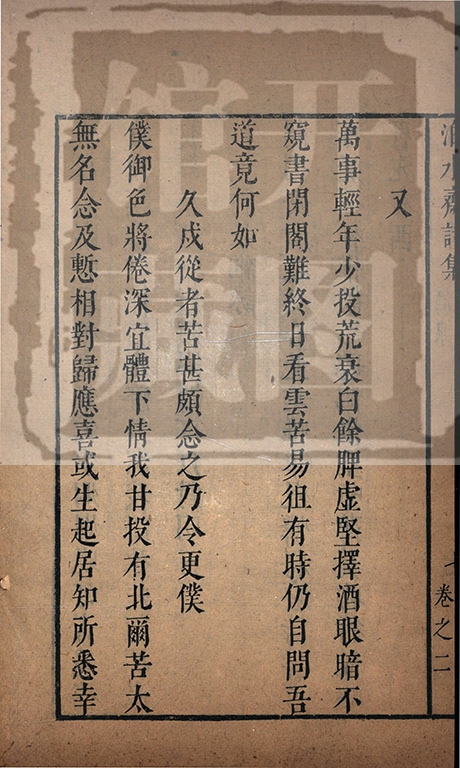 卷之二
又
萬事輕年少投荒衰白餘脾虛堅擇酒眼暗不
窺書閉閣難終日看雲苦易徂有時仍自問吾
道竟何如
久戍從者苦甚頗念之乃令更僕
僕御色將倦深宜體下情我甘投有北爾苦太
無名念及慙相對歸應喜或生起居知所悉幸